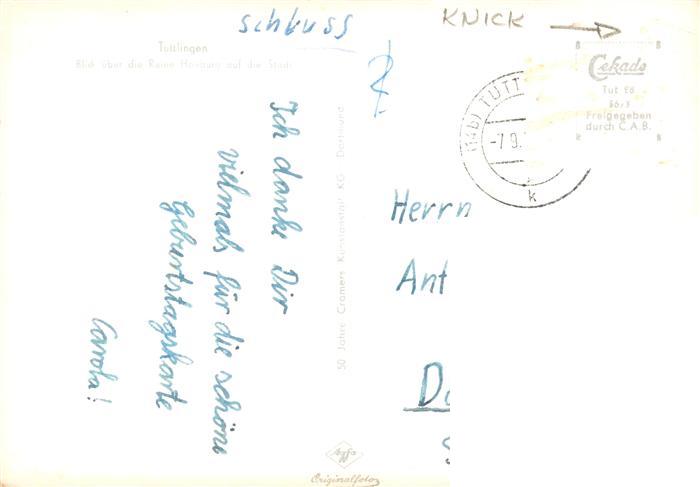 schluss
KNICK
Tuttlingen
Blick über die Ruine Honburg auf die Stadt
Cekade
Tut 28
86/3
Freigegeben
durch C.A.B.
(14b) TUTT
-7.9.
k
Ich danke Dir
vielmals für die schöne
Geburtstagskarte
Carola!
50 Jahre Cramers Kunstanstalt KG Dortmund
Herrn
Ant
D
Agfa
Originalfoto